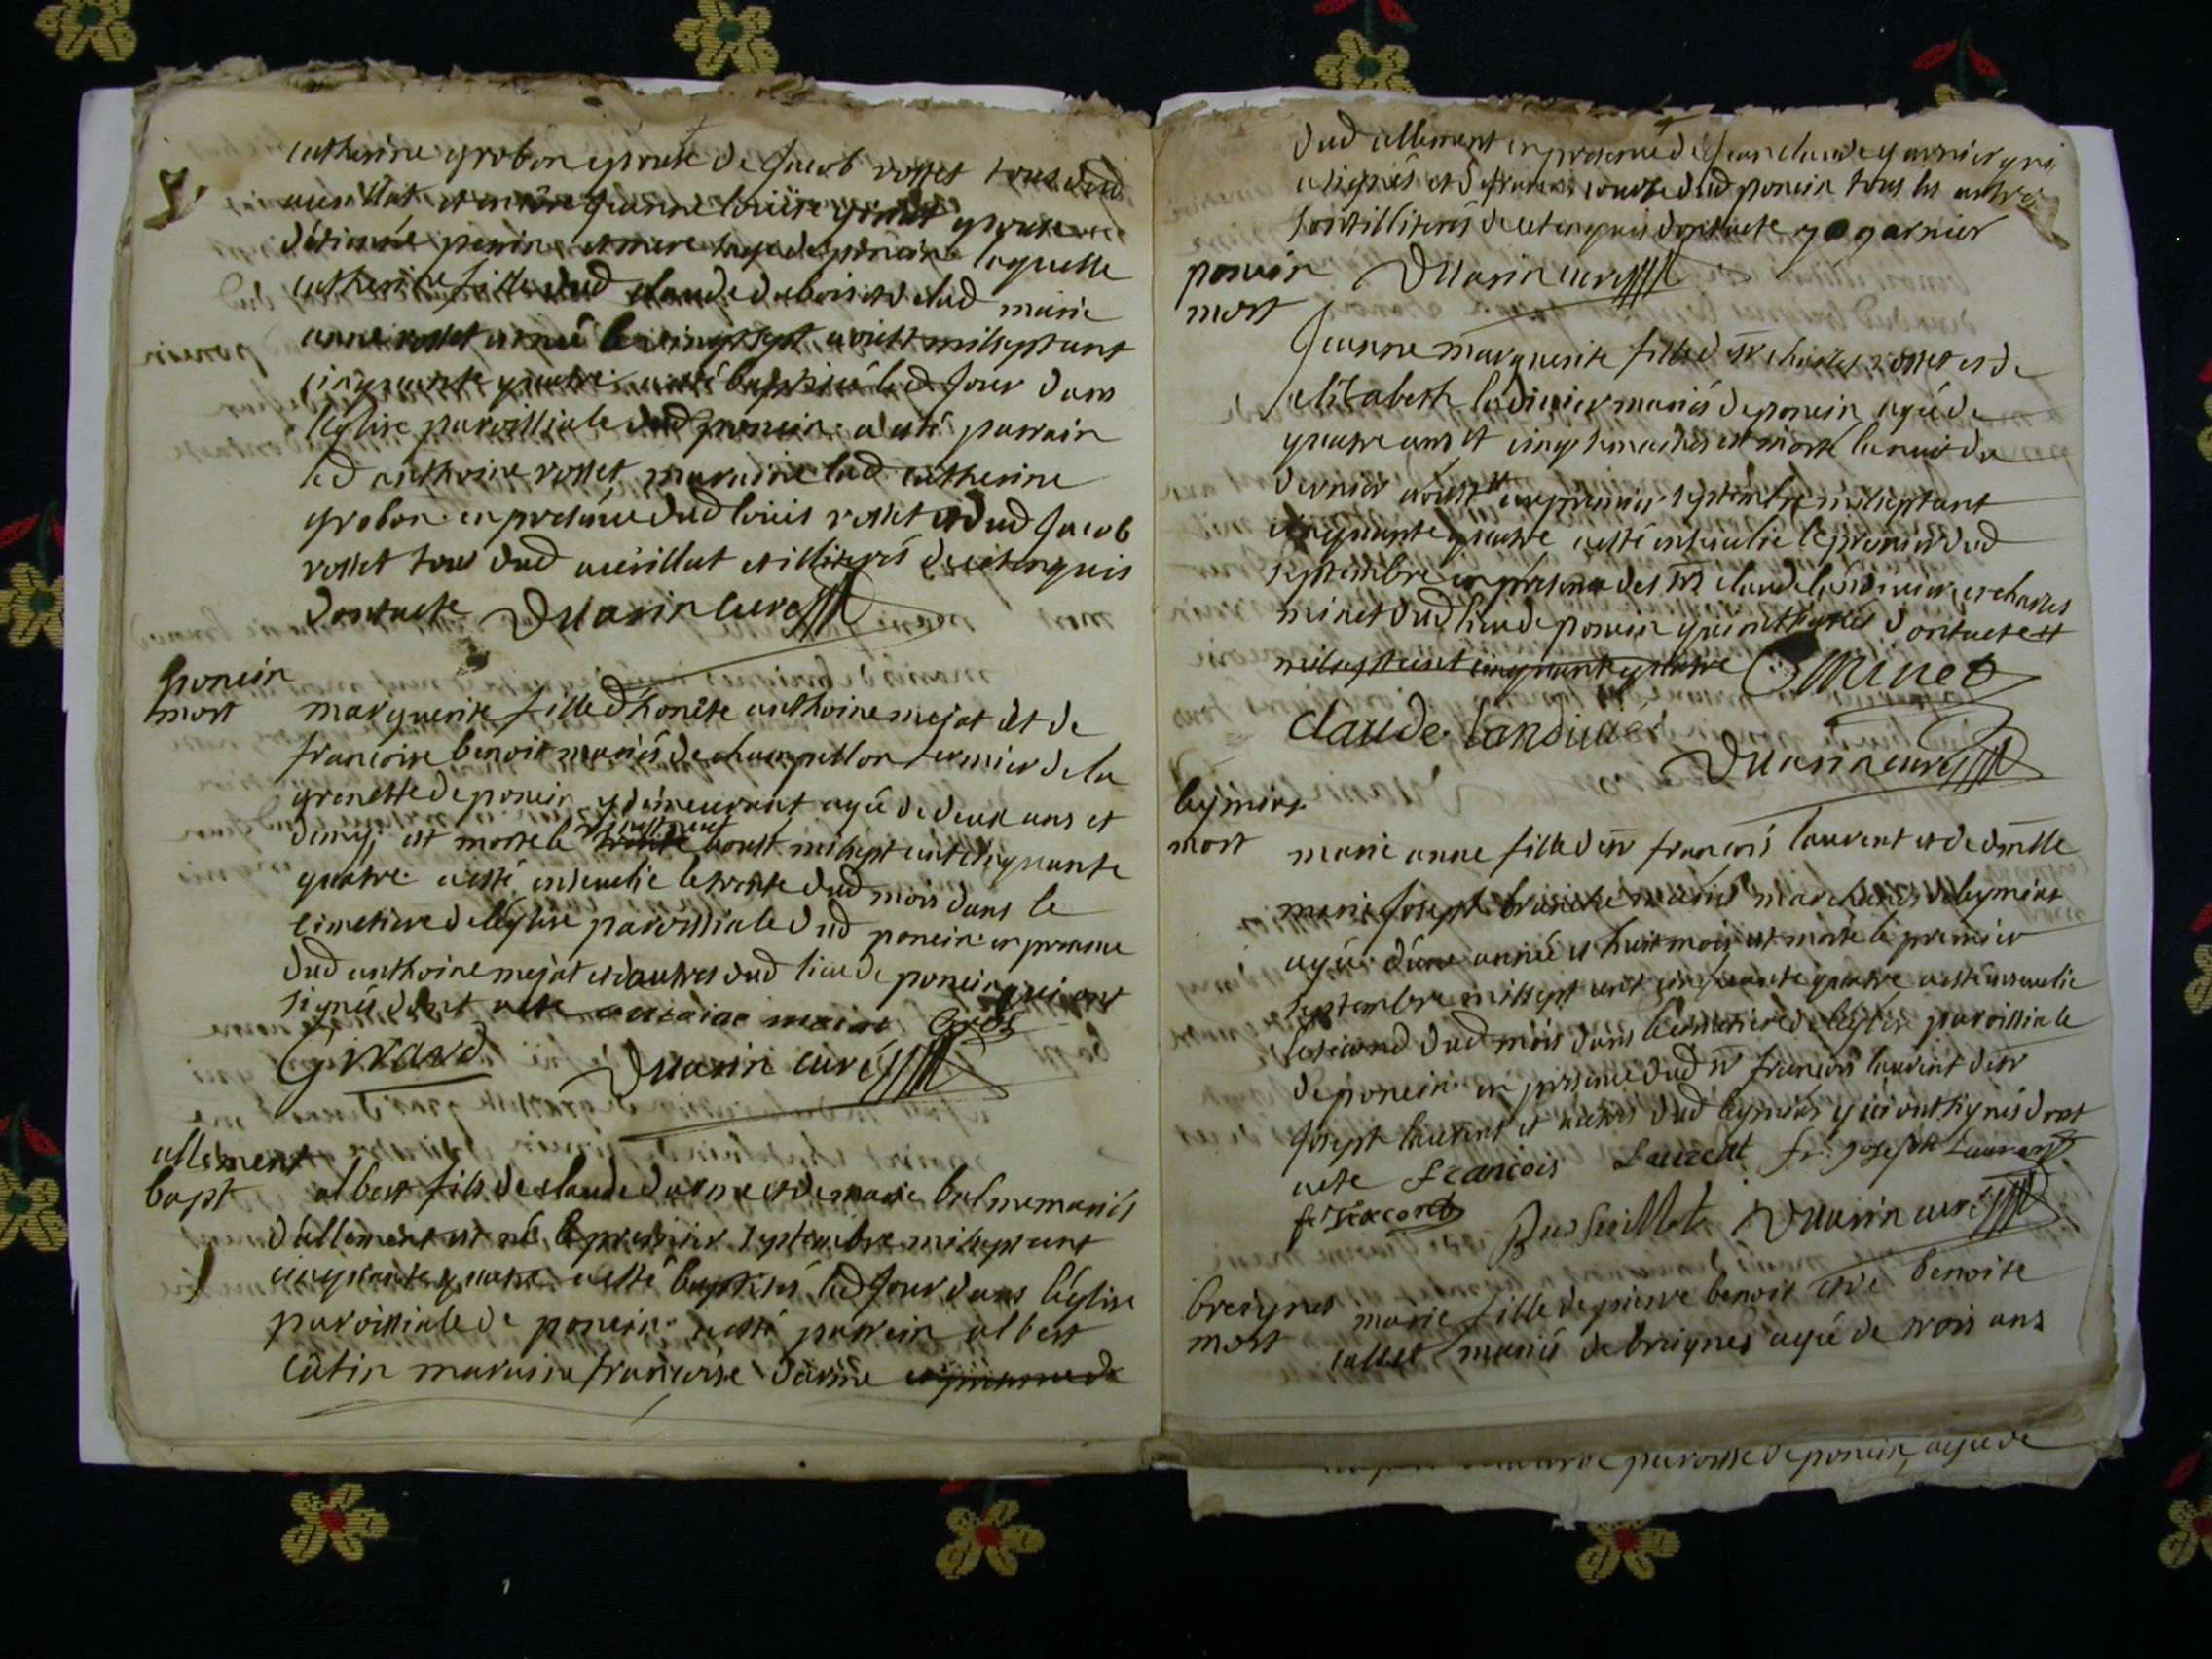 catherine grobon epouse de Jacob rosset tous dud
merillat et mere Jeanne louise epouse
d'étienne perrin et mere sage de poncin laquelle
catherine fille dud claude dubois et de lad marie
anne rosset est née le vingt sept aoust mil sept cent
cinquante quatre a esté baptisée led Jour dans
l'église paroissiale dud poncin a esté parrain
led anthoine rosset marraine lad catherine
grobon en presence dud louis rosset et dud Jacob
rosset tous dud merillat et illiterés de ce enquis
dont acte Duarin curé
poncin
mort
marguerite fille d'honête anthoine mejat et de
francoise benoit mariés de champollon fermier de la
grenette de poncin y demeurant agée de deux ans et
demy est morte le vingt neuf aoust mil sept cent cinquante
quatre a esté ensevelie le trente dud mois dans le
cimetiere de l'église paroissiale dud poncin en presence
dud anthoine mejat et d'autres dud lieu de poncin qui ont
signés dont acte
Girard Duarin curé
allement
bapt
albert fils de claude darme et de marie balme mariés
d'allement est né le premier septembre mil sept cent
cinquante quatre a esté baptisé led Jour dans l'église
paroissiale de poncin a esté parrein albert
cûtin maraine francoise darme en presence de
dud allement en presence de Jean claude garnier qui
a signé et de coutte dud poncin tous les autres
sont illiterés de ce enquis dont acte garnier
Duarin curé
poncin
mort
Jeanne marguerite fille de sr charles rosset et de
elizabeth ladinier mariés de poncin agée de
quatre ans et cinq semaines est morte la nuit du
dernier aoust au premier septembre mil sept cent
cinquante quatre a esté ensevelie le premier dud
septembre en presence des srs claude landivier et charles
minet dud lieu de poncin qui ont signés dont acte
mil sept cent cinquante quatre C minet
claude landivier
Duarin curé
leymiat
mort
marie anne fille de sr francois laurent et de dmlle
marie Joseph branche mariés marchands de leymiat
agée d'une année et huit mois est morte le premier
septembre mil sept cent cinquante quatre a esté ensevelie
le second dud mois dans le cimetiere de l'église paroissiale
de poncin en presence dud sr francois laurent de sr
Joseph laurent et autres dud leymiat qui ont signés dont
acte francois Laurent fr: joseph Laurent
Duarin curé
breignes
mort
marie fille de pierre benoit et de benoite
callet mariés de breignes agée de trois ans
paroisse de poncin agée de